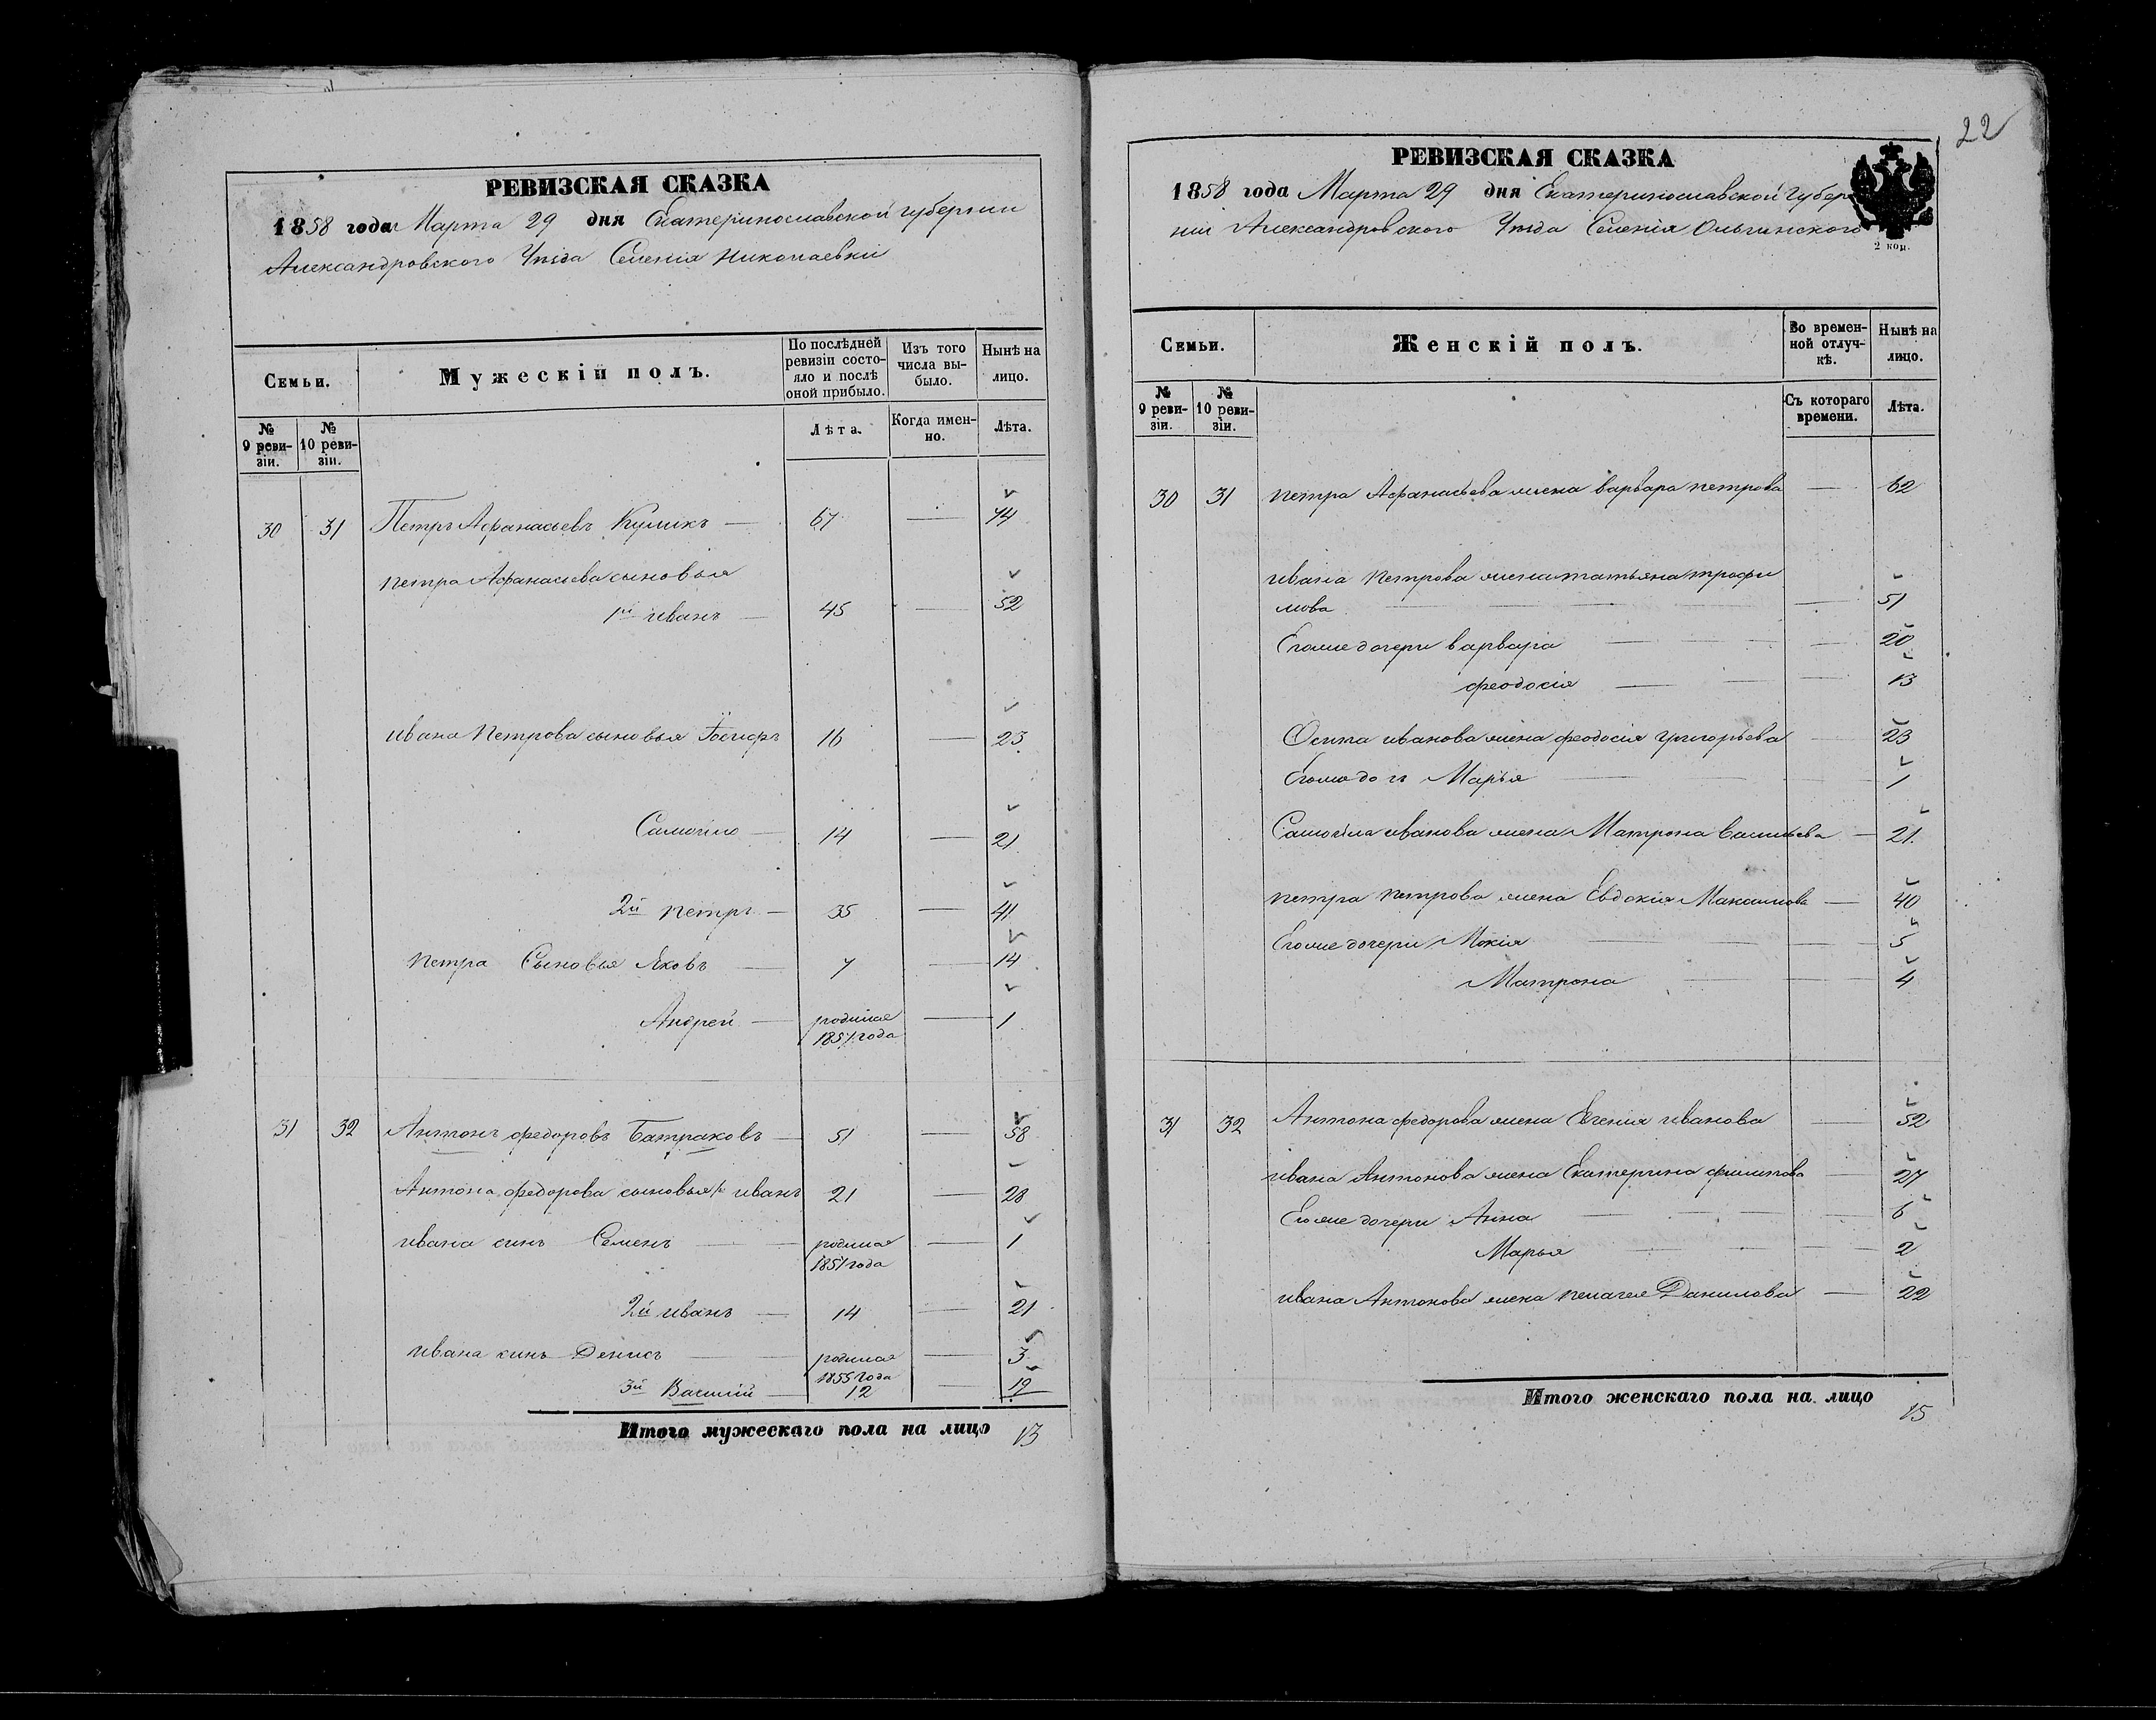 РЕВИЗСКАЯ СКАЗКА
1858 года Марта 29 дня Екатеринославской губернии
Александровского Уѣзда Селенія Николаевки
Семьи.
Мужескій полъ.
По послѣдней ревизіи состояло и послѣ оной прибыло.
Изъ того числа выбыло.
Нынѣ на лицо.
№ 9 ревизіи.
№ 10 ревизіи.
Лѣта.
Когда именно.
Лѣта.
30 31 Петръ Афанасьевъ Куликъ — 67 — 74
Петра Афанасьева сыновья
1й иванъ — 45 — 52
ивана Петрова сыновья Іосифъ 16 — 23
Самойло — 14 — 21
2й петръ — 35 — 41
петра Сыновья Яковъ — 7 — 14
Андрей — родился — 1
1857 года
31 32 Антонъ федоровъ Батраковъ — 51 — 58
Антона федорова сыновья 1й иванъ 21 — 28
ивана синъ Семенъ — родился — 1
1857 года
2й иванъ — 14 — 21
ивана синъ Денисъ — родился — 3
1855 года
3й Василій — 12 — 19
Итого мужескаго пола на лицо 13
22
РЕВИЗСКАЯ СКАЗКА
1858 года Марта 29 дня Екатеринославской Губер
ніи Александровского Уѣзда Селенія Ольгинского
2 коп.
Семьи.
Женскій полъ.
Во временной отлучкѣ.
Нынѣ на лицо.
№ 9 ревизіи.
№ 10 ревизіи.
Съ котораго времени.
Лѣта.
30 31 петра Афанасьева жена варвара петрова — 62
ивана Петрова жена татьяна трофи
мова — 51
Егоже дочери варвара — 20
феодосія — 13
Осипа иванова жена феодосія григорьева — 23
Егоже дочь Марья — 1
Самойла иванова жена Матрона васильева — 21
петра петрова жена Евдокія Максимова — 40
Егоже дочери Мокія — 5
Матрона — 4
31 32 Антона федорова жена Евгенія иванова — 52
ивана Антонова жена Екатерина филипова — 27
Егоже дочери Анна — 6
Марья — 2
ивана Антонова жена пелагея Данилова — 22
Итого женскаго пола на лицо 15